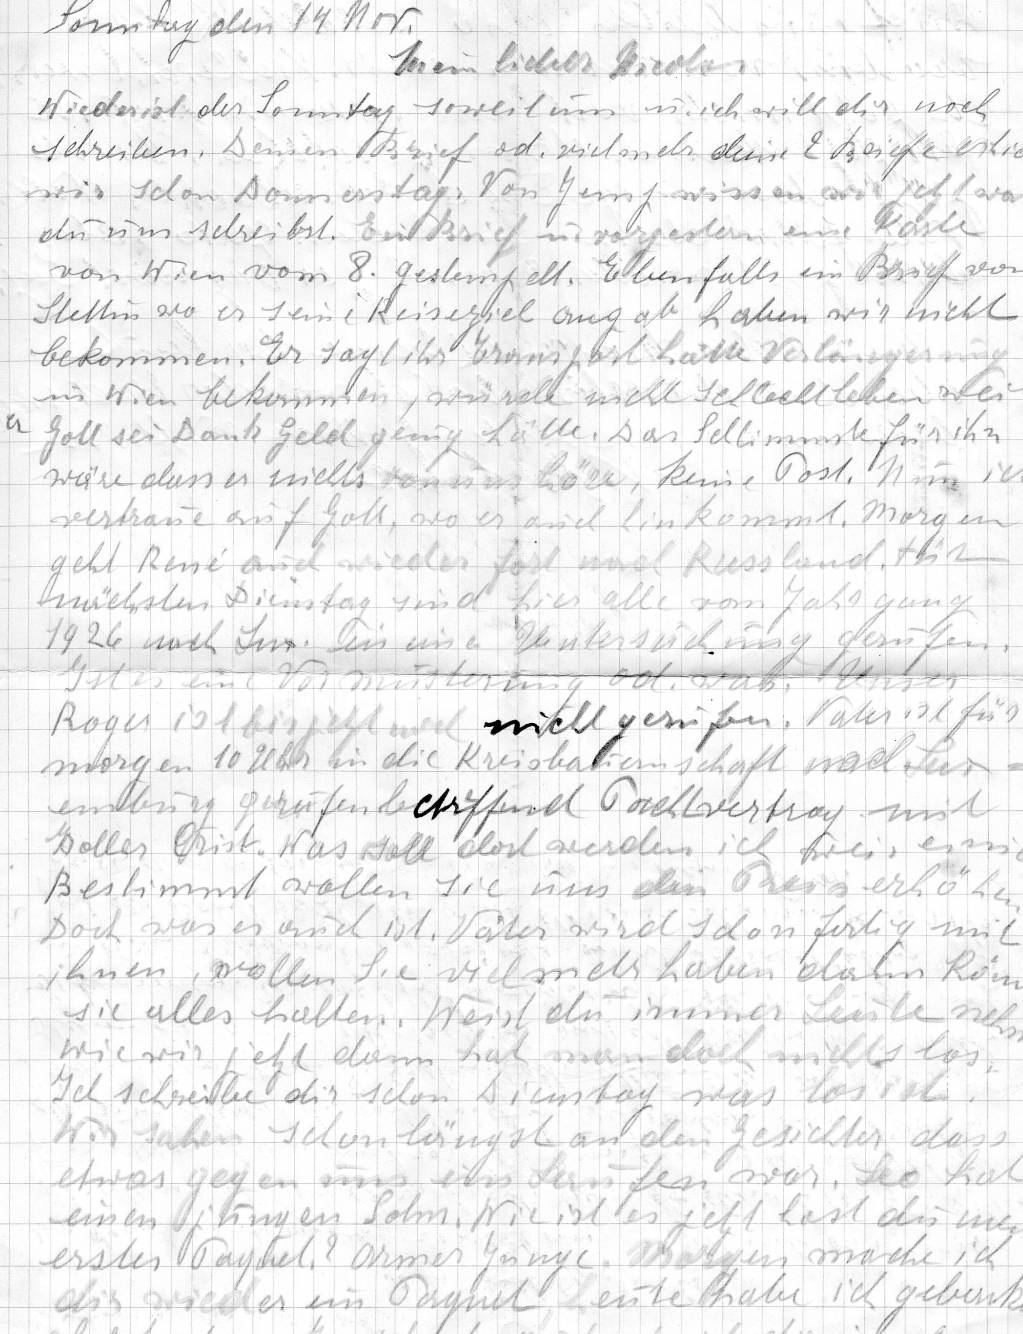 Sonntag den 14 Nov.
Mein lieber Nicolas
Wieder ist der Sonntag soweit um u. ich will dir noch
schreiben. Deinen Brief od. vielmehr deine 2 Briefe
wir schon Donnerstag. Von Jemp wissen wir jetzt
du uns schreibst. Ein Brief u. vorgestern eine Karte
von Wien vom 8. gestempelt. Ebenfalls ein Brief von
Stettin wo er sein Reiseziel angab haben wir nicht
bekommen. Er sagt ihr Transport hätte Verlängerung
in Wien bekommen, würde nicht schlecht leben
er Gott sei Dank Geld genug hätte. Das Schlimmste für ihn
wäre dass er nichts von uns höre, keine Post. Nun ich
vertraue auf Gott, wo er auch hinkommt. Morgen
geht René auch wieder fort nach Russland. Für
nächsten Dienstag sind hier alle vom Jahrgang
1926 nach Lux. in eine Untersuchung gerufen.
Ist es eine Vormusterung od. was. Unser
Roger ist bis jetzt noch nicht gerufen. Vater ist für
morgen 10 Uhr in die Kreisbauernschaft nach Lux-
emburg gerufen betreffend Pachtvertrag mit
Was soll doch werden ich
Bestimmt wollen sie uns den Preis erhöhen
Doch was es auch ist. Vater wird schon fertig mit
ihnen, wollen sie vielmehr haben dann
sie alles halten. Weist du immer Leute
wie wir jetzt dann hat man doch nichts los.
Ich schreibe dir schon Dienstag was los ist.
Wir sahen schon längst an den Gesichter dass
etwas gegen uns am Laufen war. Leo hat
einen jungen Sohn. Wie ist es jetzt hast du
erstes Paquet? Armer Junge. Morgen mache ich
dir wieder ein Paquet, heute habe ich